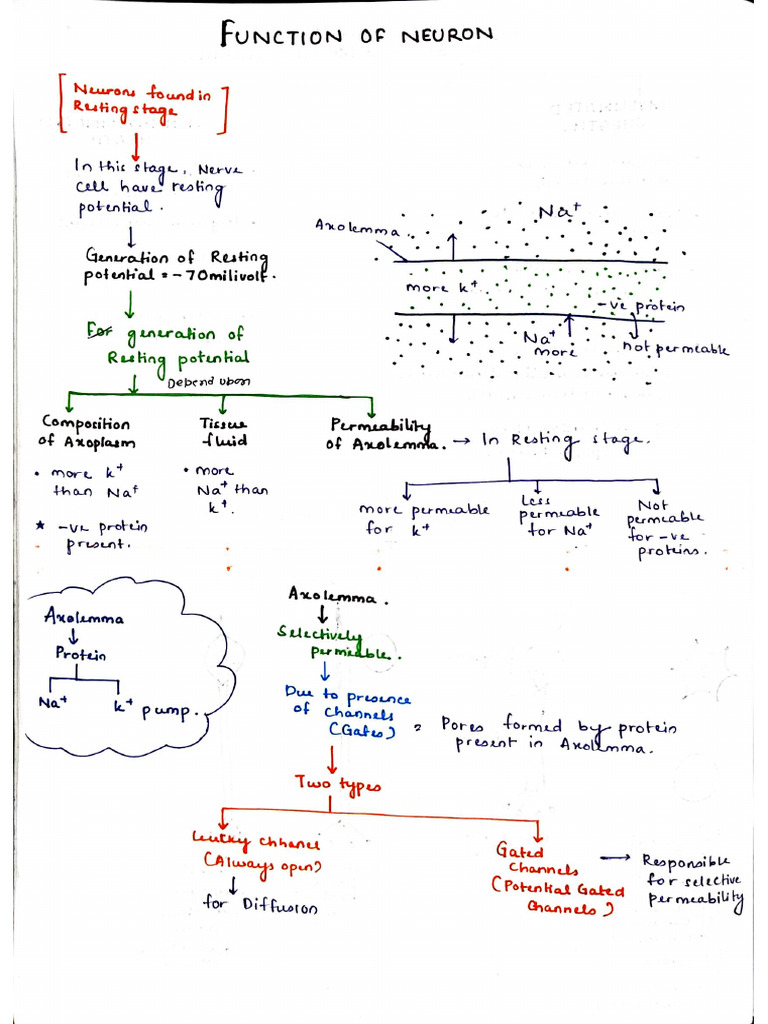 FUNCTION OF NEURON
Neurons found in
Resting stage
In this stage, Nerve
cell have resting
potential.
Generation of Resting
potential = -70milivolt.
For generation of
Resting potential
Depend upon
Axolemma.
Na+
more k+
-ve protein
Na+
more
not permeable
Composition
of Axoplasm
• more k+
than Na+
* -ve protein
present.
Tissue
fluid
• more
Na+ than
k+.
Permeability
of Axolemma. → In Resting stage.
more permeable
for k+
Less
permeable
for Na+
Not
permeable
for -ve
proteins.
Axolemma
Protein
Na+
k+ pump.
Axolemma.
Selectively
permeable.
Due to presence
of channels
(Gates)
= Pores formed by protein
present in Axolemma.
Two types
(Always open)
for Diffusion
Gated
channels
(Potential Gated
channels)
→ Responsible
for selective
permeability